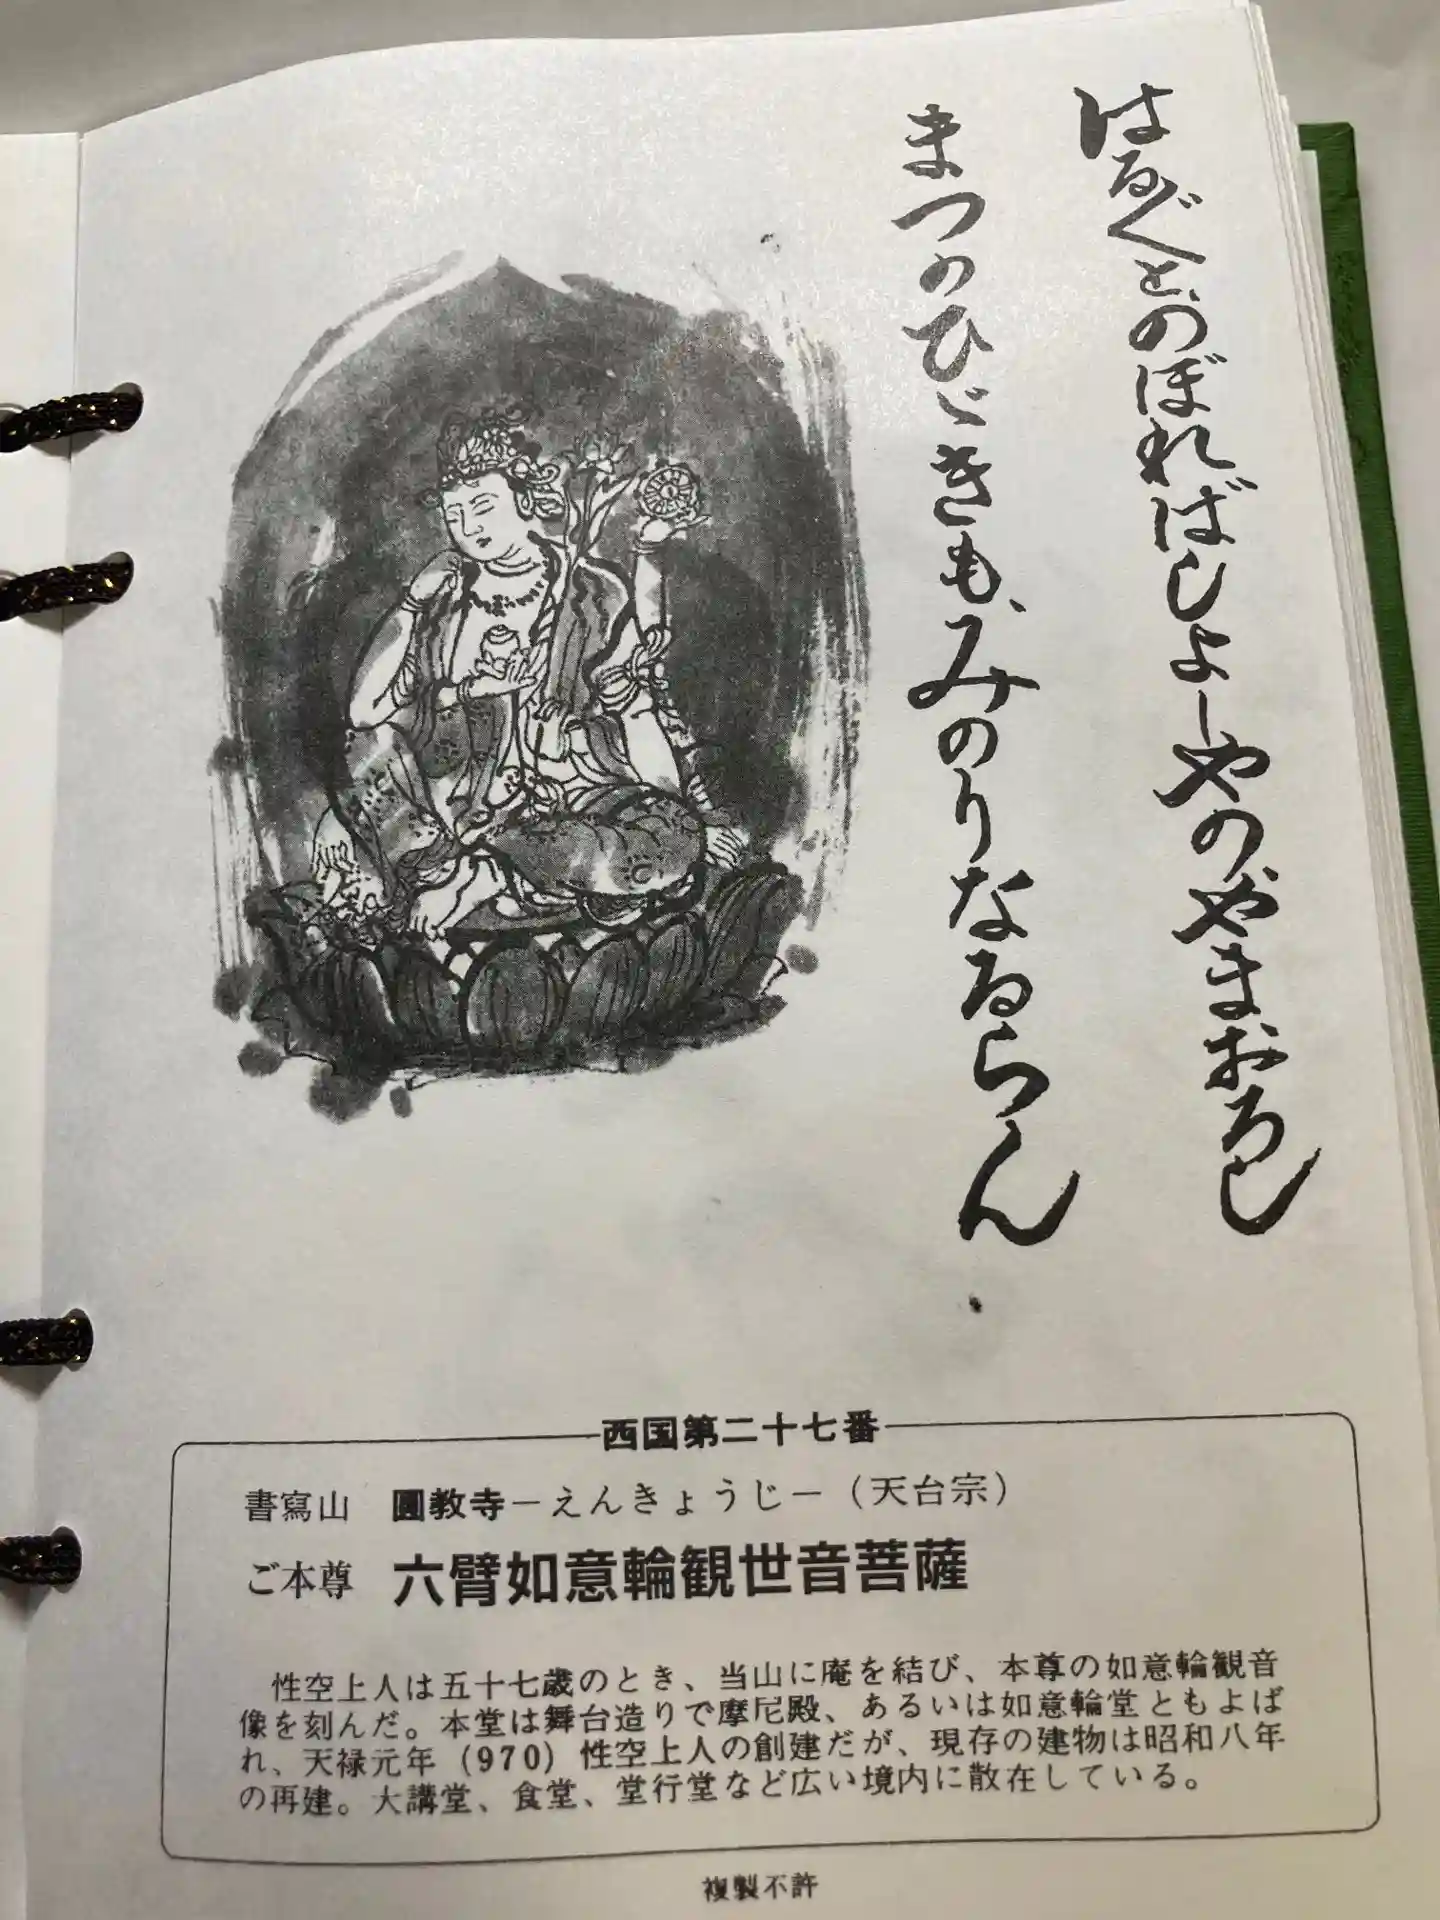 はる〲とのぼればしよーやのやまおろし
まつのひゞきも、みのりなるらん
西国第二十七番
書寫山 圓教寺－えんきょうじ－（天台宗）
ご本尊 六臂如意輪観世音菩薩
性空上人は五十七歳のとき、当山に庵を結び、本尊の如意輪観音
像を刻んだ。本堂は舞台造りで摩尼殿、あるいは如意輪堂ともよば
れ、天禄元年（970）性空上人の創建だが、現存の建物は昭和八年
の再建。大講堂、食堂、堂行堂など広い境内に散在している。
複製不許